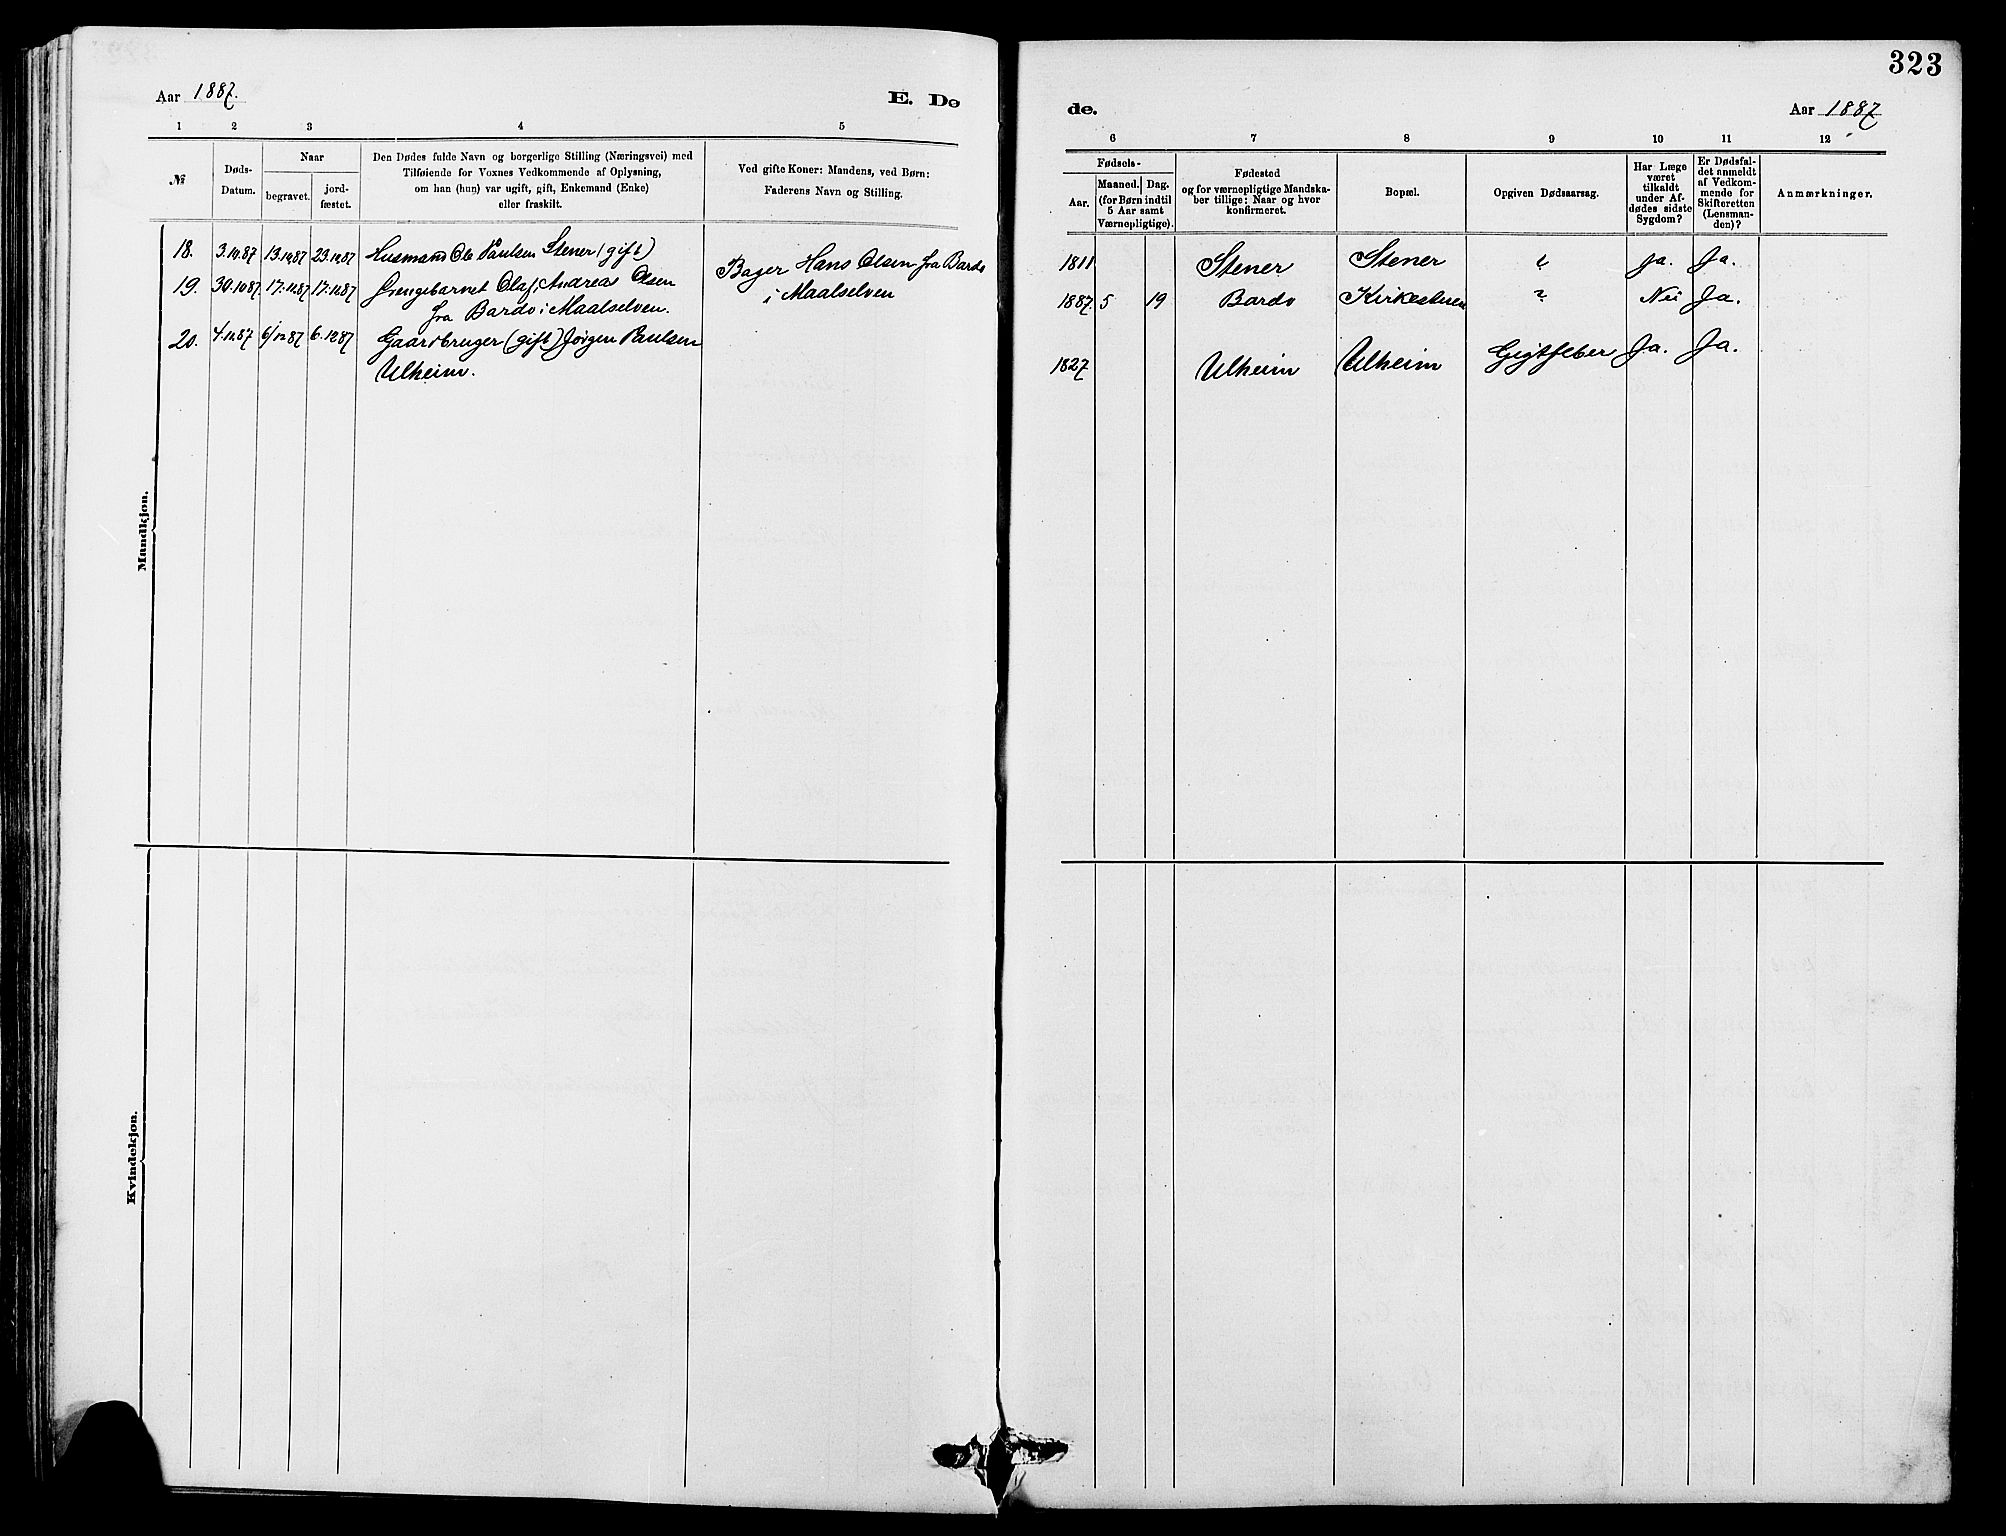 323
Aar 1887.
E. Dø
de.
Aar 1887
1 2 3 4 5
6 7 8 9 10 11 12
№
Døds-
Datum.
Naar
begravet.
jord-
fæstet.
Den Dødes fulde Navn og borgerlige Stilling (Næringsvei) med
Tilføiende for Voxnes Vedkommende af Oplysning,
om han (hun) var ugift, gift, Enkemand (Enke)
eller fraskilt.
Ved gifte Koner: Mandens, ved Børn:
Faderens Navn og Stilling.
Fødsels-
Aar.
Maaned. Dag.
(for Børn indtil
5 Aar samt
Værnepligtige).
Fødested
og for værnepligtige Mandska-
ber tillige: Naar og hvor
konfirmeret.
Bopæl.
Opgiven Dødsaarsag.
Har Læge
været
tilkaldt
under Af-
dødes sidste
Sygdom?
Er Dødsfal-
det anmeldt
af Vedkom-
mende for
Skifteretten
(Lensman-
den)?
Anmærkninger.
Mandkjøn.
18. 3.10.87 13.10.87 23.10.87 Husmand Ole Paulsen Stener (gift)
1811 Stener Stener Ja. Ja.
19. 30.10.87. 17.11.87 17.11.87 Drengebarnet Olaf Andreas Olsen
fra Bardo i Maalselven.
Bager Hans Olsen fra Bardo
i Maalselven
1887. 5 19 Bardo Kirkestuen ? Nei Ja.
20. 4.12.87 6/12 87 6.12.87 Gaardbruger (gift) Jørgen Paulsen
Ulheim.
1827 Ulheim Ulheim Gigtfeber Ja. Ja.
Kvindekjøn.